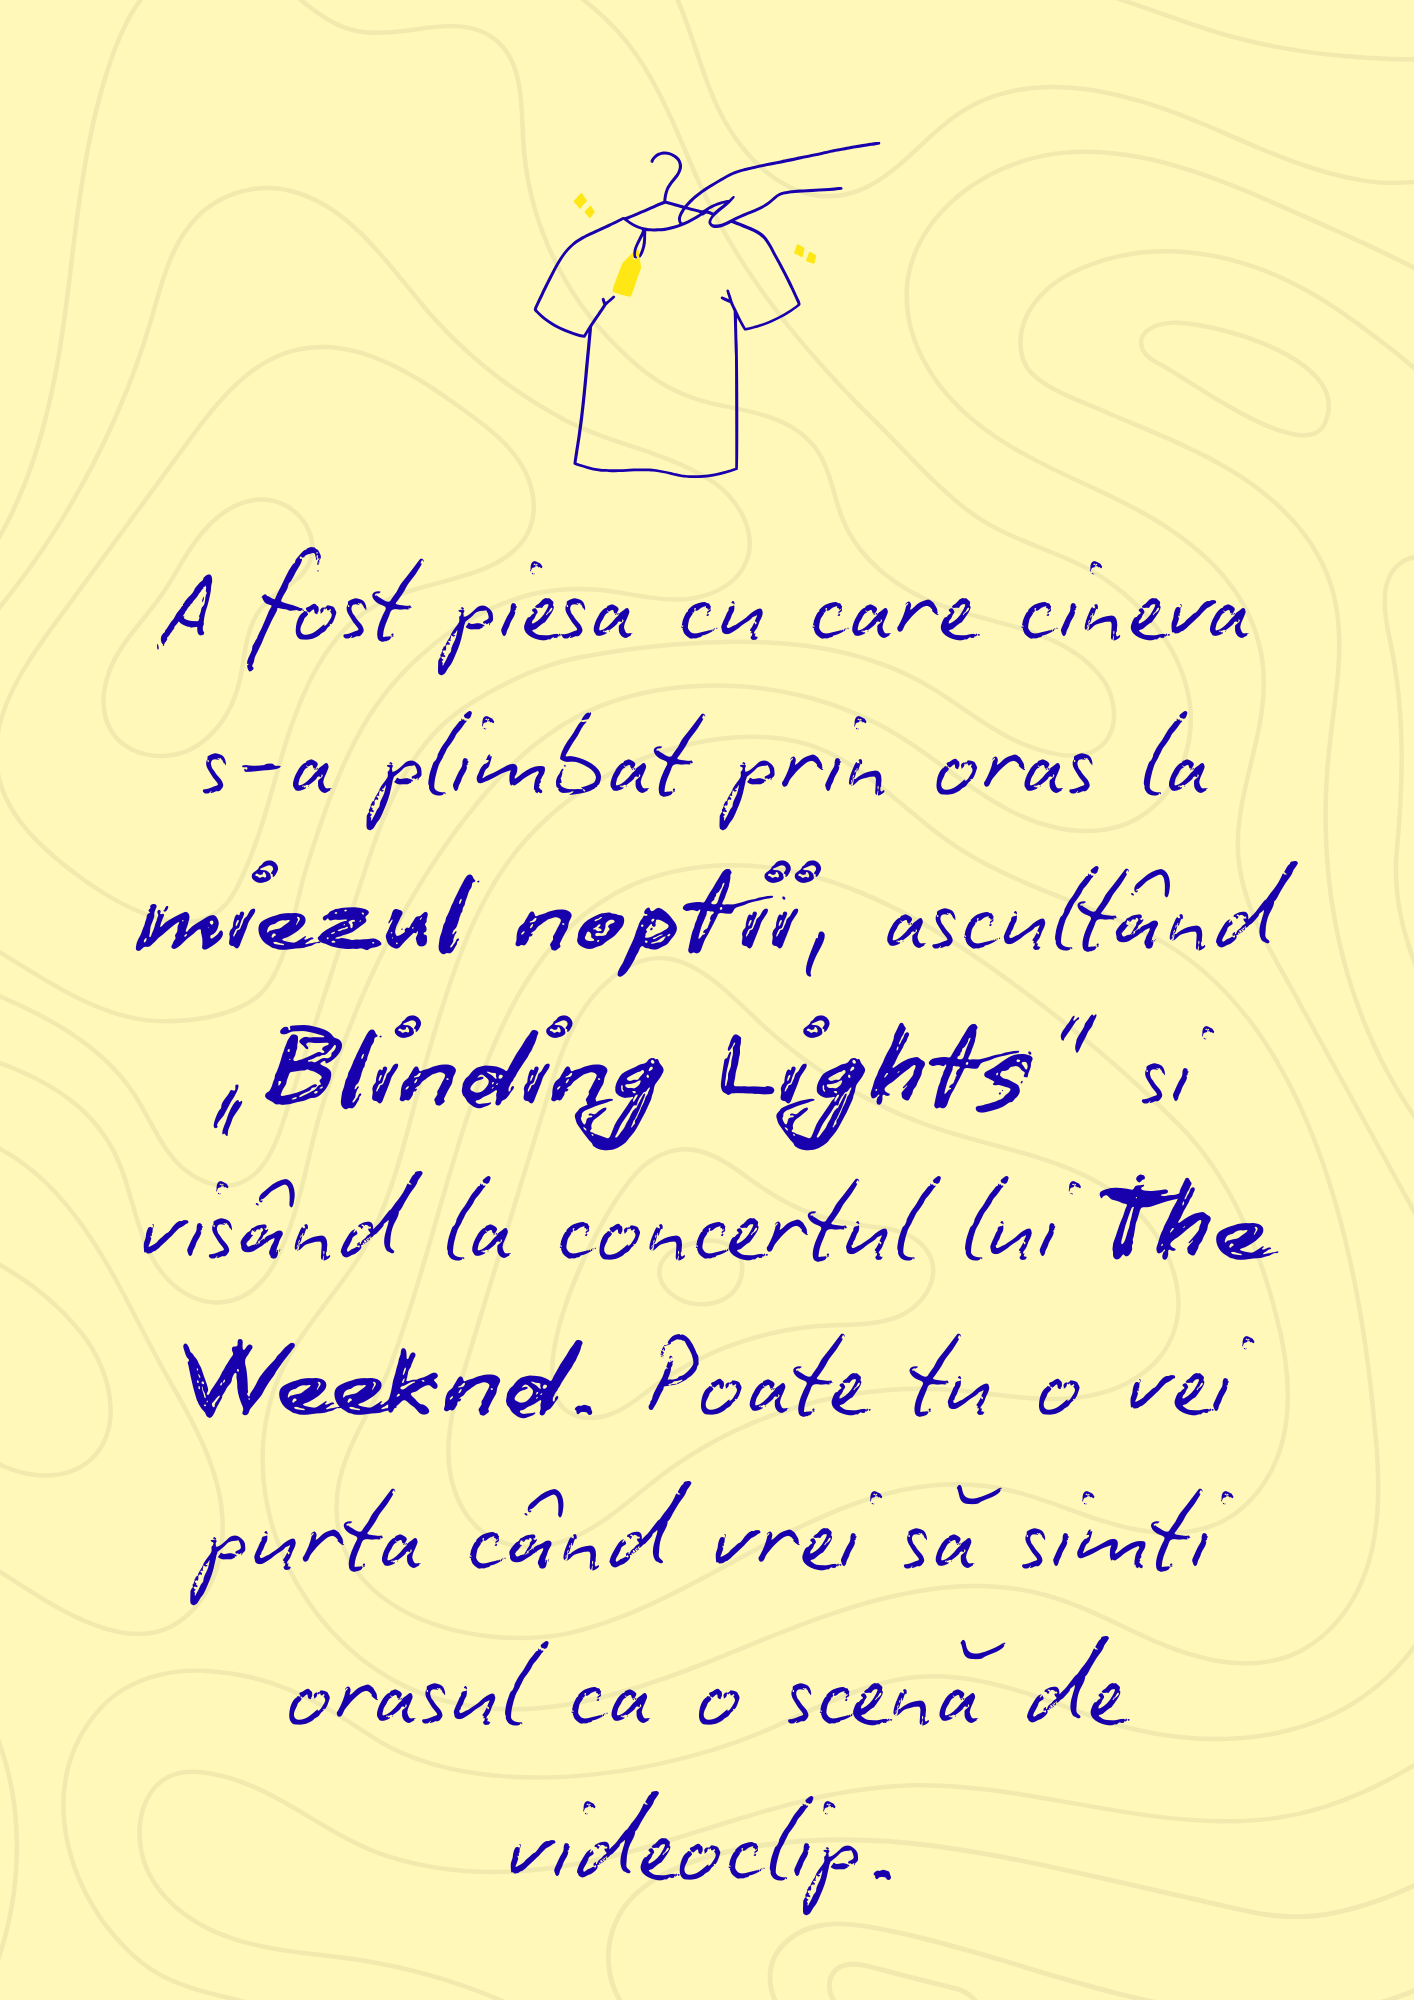 A fost piesa cu care cineva
s-a plimbat prin oras la
miezul noptii, ascultând
„Blinding Lights" si
visând la concertul lui The
Weeknd. Poate tu o vei
purta când vrei să simti
orasul ca o scenă de
videoclip.